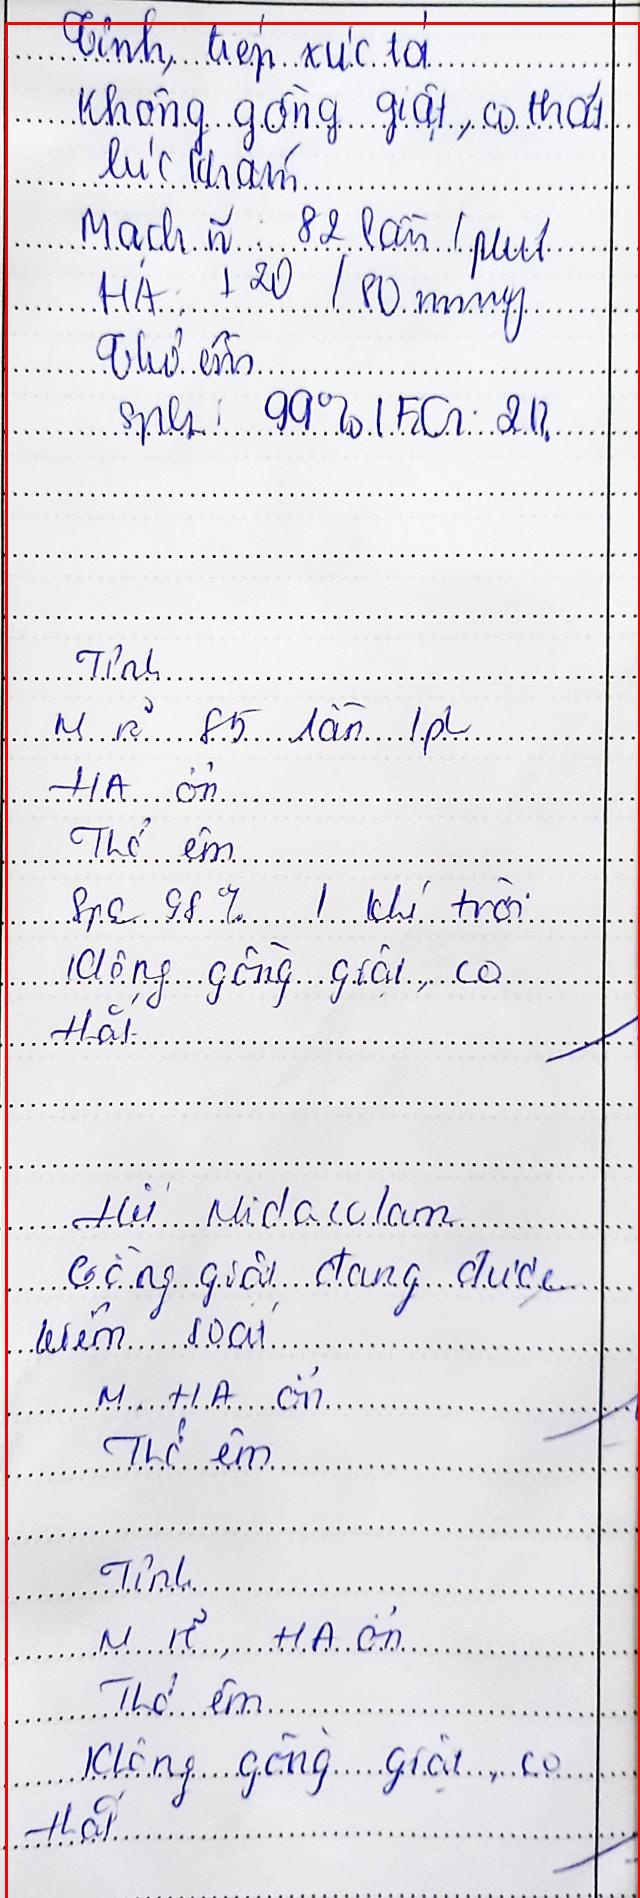 Tỉnh, tiếp xúc tố
Không gồng giật, co thắt
lúc khám
Mạch rõ : 82 lần / phút
HA : 120 / 80 mmHg
Thở êm
SpO2 : 99% /
Tỉnh
M rõ 85 lần / ph
HA ổn
Thở êm
SpO2 98% / khí trời
Không gồng giật, co
thắt
Hết Midazolam
Gồng giật đang được
kiểm soát
M, HA ổn
Thở êm
Tỉnh
M rõ, HA ổn
Thở êm
Không gồng giật, co
thắt